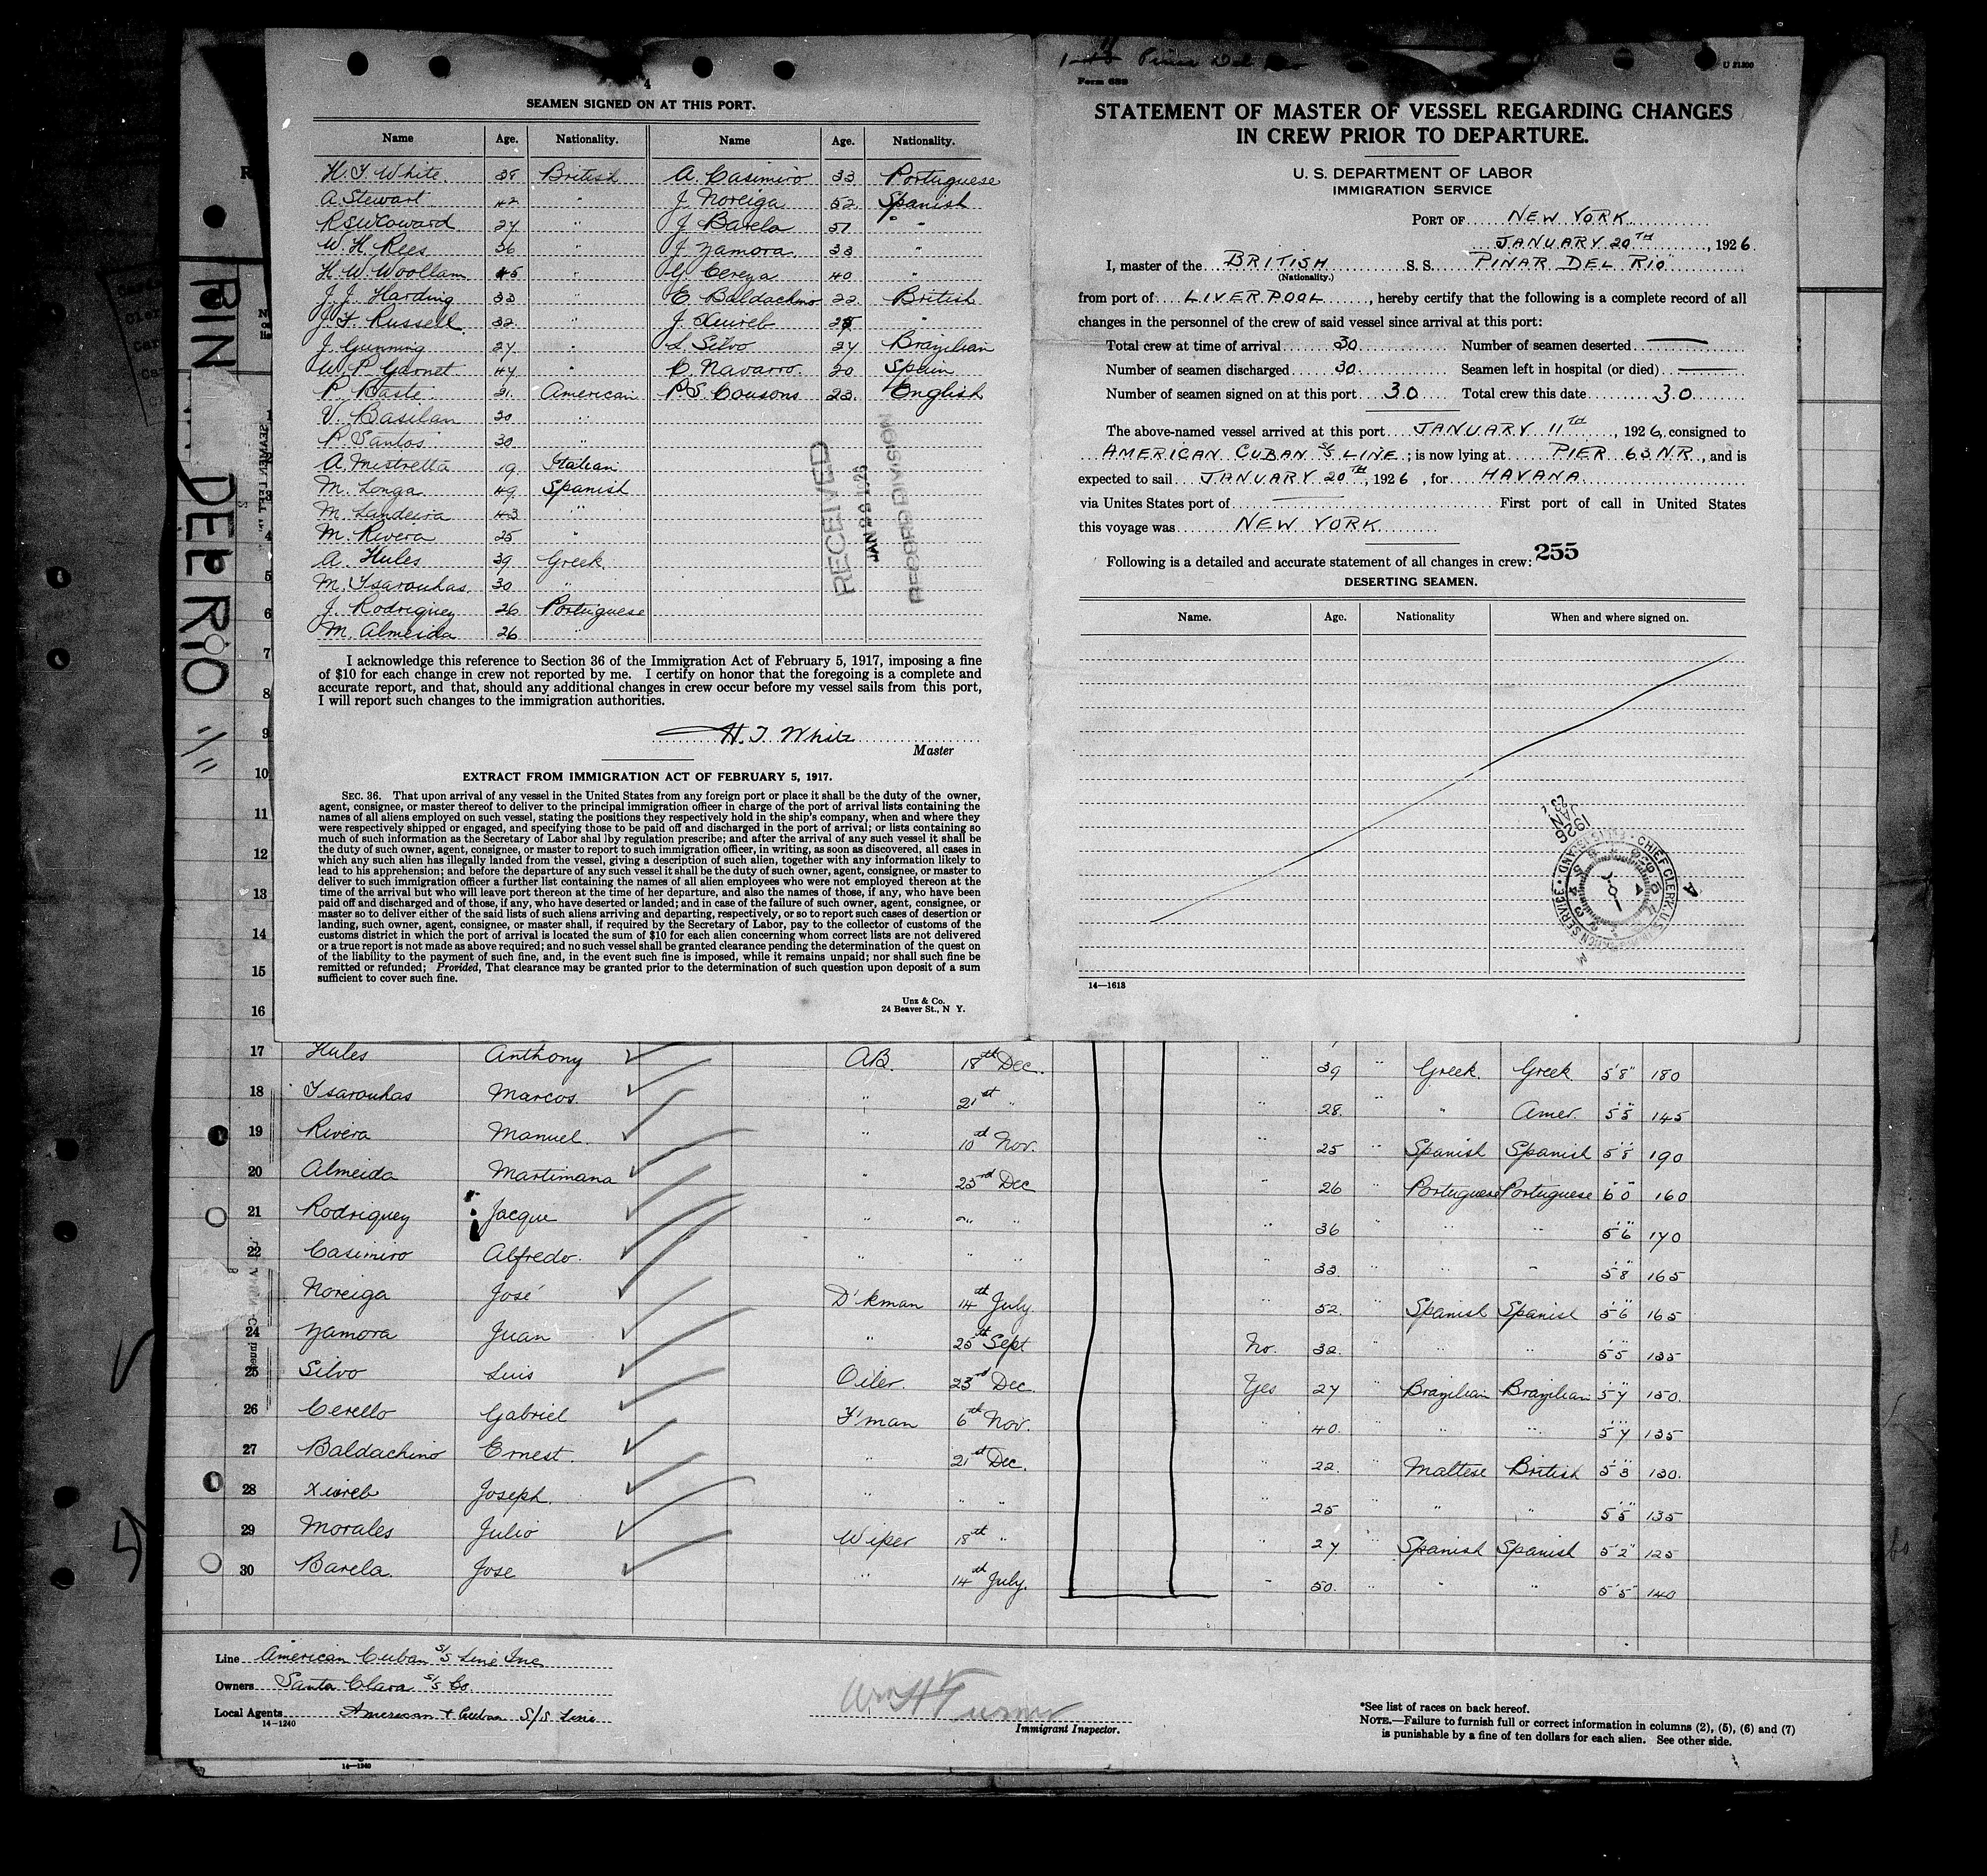 4
SEAMEN SIGNED ON AT THIS PORT.
Name Age. Nationality. Name Age. Nationality.
H. T. White. 38 British A. Casimiro 33 Portuguese
A Stewart 42 " J. Noreiga 52 Spanish
Coward 27 " J. Barela 51 "
W. H. Rees 36 " J. Zamora 33 "
H. W. Woollam 45 " G. Cereza 40 "
J. J. Harding 33 " E. Baldachino 22 British
J. F. Russell 32 " J. Xuireb 25 "
J. Gunning 27 " L. Silvo 27 Brazilian
W. P. Garnet 47 " C. Navarro. 20 Spain
P. Baste 21 American P. S. Cousons 23. English
V. Basilan 30 "
P. Santos 30 "
A. Mistretta 19 Italian
M. Longa 49 Spanish
M. Landeira 43 "
M. Rivera 25 "
A. Hules 39 Greek
M. Tsarouhas 30 "
J. Rodriguez 26 Portuguese
M. Almeida 26 "
RECEIVED
JAN 22 1926
RECORD DIVISION
I acknowledge this reference to Section 36 of the Immigration Act of February 5, 1917, imposing a fine
of $10 for each change in crew not reported by me. I certify on honor that the foregoing is a complete and
accurate report, and that, should any additional changes in crew occur before my vessel sails from this port,
I will report such changes to the immigration authorities.
H. T. White
Master
EXTRACT FROM IMMIGRATION ACT OF FEBRUARY 5, 1917.
SEC. 36. That upon arrival of any vessel in the United States from any foreign port or place it shall be the duty of the owner,
agent, consignee, or master thereof to deliver to the principal immigration officer in charge of the port of arrival lists containing the
names of all aliens employed on such vessel, stating the positions they respectively hold in the ship's company, when and where they
were respectively shipped or engaged, and specifying those to be paid off and discharged in the port of arrival; or lists containing so
much of such information as the Secretary of Labor shal lby regulation prescribe; and after the arrival of any such vessel it shall be
the duty of such owner, agent, consignee, or master to report to such immigration officer, in writing, as soon as discovered, all cases in
which any such alien has illegally landed from the vessel, giving a description of such alien, together with any information likely to
lead to his apprehension; and before the departure of any such vessel it shall be the duty of such owner, agent, consignee, or master to
deliver to such immigration officer a further list containing the names of all alien employees who were not employed thereon at the
time of the arrival but who will leave port thereon at the time of her departure, and also the names of those, if any, who have been
paid off and discharged and of those, if any, who have deserted or landed; and in case of the failure of such owner, agent, consignee, or
master so to deliver either of the said lists of such aliens arriving and departing, respectively, or so to report such cases of desertion or
landing, such owner, agent, consignee, or master shall, if required by the Secretary of Labor, pay to the collector of customs of the
customs district in which the port of arrival is located the sum of $10 for each alien concerning whom correct lists are not delivered
or a true report is not made as above required; and no such vessel shall be granted clearance pending the determination of the quest on
of the liability to the payment of such fine, and, in the event such fine is imposed, while it remains unpaid; nor shall such fine be
remitted or refunded; Provided, That clearance may be granted prior to the determination of such question upon deposit of a sum
sufficient to cover such fine.
Unz & Co.
24 Beaver St., N Y.
Pinar Del Rio
Form 689
U 21300
STATEMENT OF MASTER OF VESSEL REGARDING CHANGES
IN CREW PRIOR TO DEPARTURE.
U. S. DEPARTMENT OF LABOR
IMMIGRATION SERVICE
PORT OF NEW YORK
JANUARY 20TH, 1926.
I, master of the BRITISH S. S. PINAR DEL RIO
(Nationality.)
from port of LIVERPOOL, hereby certify that the following is a complete record of all
changes in the personnel of the crew of said vessel since arrival at this port:
Total crew at time of arrival 30. Number of seamen deserted
Number of seamen discharged 30. Seamen left in hospital (or died)
Number of seamen signed on at this port 30 Total crew this date 30
The above-named vessel arrived at this port JANUARY 11TH, 1926, consigned to
AMERICAN CUBAN S/S LINE; is now lying at PIER 63 N.R., and is
expected to sail JANUARY 20TH, 1926, for HAVANA
via Unites States port of First port of call in United States
this voyage was NEW YORK
Following is a detailed and accurate statement of all changes in crew: 255
DESERTING SEAMEN.
Name. Age. Nationality When and where signed on.
1926 JAN 23
CHIEF CLERK, U.S. IMMIGRATION SERVICE · ELLIS ISLAND
14—1613
PINAR DEL RIO 1/11
1
3
4
5
6
7
8
9
10
11
12
13
14
15
16
17 Hules Anthony AB. 18th Dec. " 39 " Greek Greek 5'8" 180
18 Tsarouhas Marcos. " 21st " " 28. " " Amer. 5'5" 145
19 Rivera Manuel. " 10th Nov. " 25 " Spanish Spanish 5'8" 190
20 Almeida Martimana " 23rd Dec " 26 " Portuguese Portuguese 6'0" 160
21 Rodriguez Jacque " " " " 36 " " " 5'6" 170
22 Casimiro Alfredo. " " " " 33 " " " 5'8" 165
Noreiga José D'kman 14th July. " 52. " Spanish Spanish 5'6" 165
24 Zamora Juan " 25th Sept No. 32. " " " 5'5" 135
25 Silvo Luis Oiler. 23rd Dec. Yes 27 " Brazilian Brazilian 5'7" 150.
26 Cerello Gabriel F'man 6th Nov. " 40. " " " 5'7" 135
27 Baldachino Ernest. " 21st Dec. " 22. " Maltese British 5'3" 130.
28 Xuireb Joseph. " " " " 25 " " " 5'5" 135
29 Morales Julio Wiper 18th " " 27 " Spanish Spanish 5'2" 125
30 Barela. Jose " 14th July. " 50. " " " 5'5" 140
Line American Cuban S/S Line Inc
Owners Santa Clara S/S Co.
Local Agents American & Cuban S/S Line
14-1240
Wm H Turner
Immigrant Inspector.
*See list of races on back hereof.
NOTE.—Failure to furnish full or correct information in columns (2), (5), (6) and (7)
is punishable by a fine of ten dollars for each alien. See other side.
14—1240